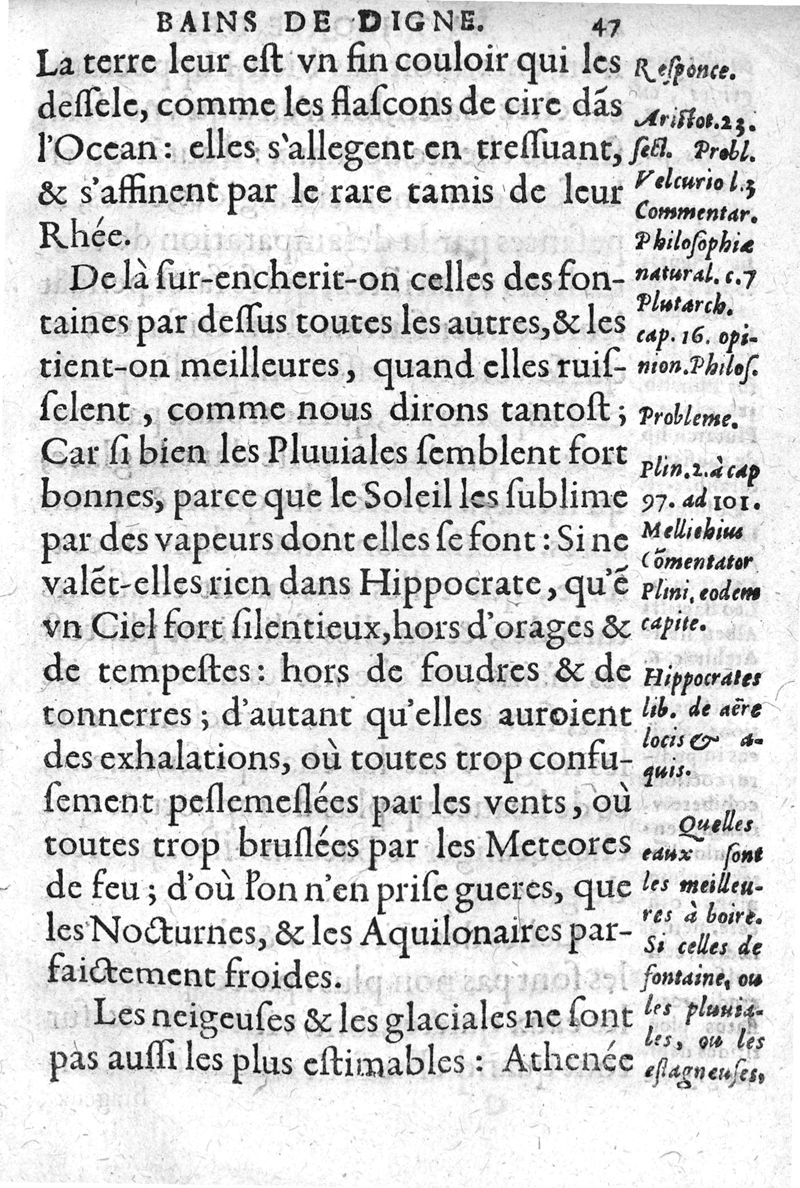 BAINS DE DIGNE. 47
La terre leur eſt vn fin couloir qui les
deſſele, comme les flaſcons de cire dãs
l'Ocean : elles s'allegent en treſſuant,
& s'affinent par le rare tamis de leur
Rhée.
De là ſur-encherit-on celles des fon-
taines par deſſus toutes les autres, & les
tient-on meilleures, quand elles ruiſ-
ſelent , comme nous dirons tantoſt ;
Car ſi bien les Pluuiales ſemblent fort
bonnes, parce que le Soleil les ſublime
par des vapeurs dont elles ſe font : Si ne
valẽt-elles rien dans Hippocrate, qu'ẽ
vn Ciel fort ſilentieux, hors d'orages &
de tempeſtes : hors de foudres & de
tonnerres ; d'autant qu'elles auroient
des exhalations, où toutes trop confu-
ſement peſlemeſlées par les vents, où
toutes trop bruſlées par les Meteores
de feu ; d'où l'on n'en priſe gueres, que
les Nocturnes, & les Aquilonaires par-
faictement froides.
Les neigeuſes & les glaciales ne ſont
pas auſſi les plus eſtimables : Athenée
Reſponce.
Ariſtot. 23.
ſect. Probl.
Velcurio l.3
Commentar.
Philoſophiæ
natural. c.7
Plutarch.
cap. 16. opi-
nion. Philoſ.
Probleme.
Plin. 2. à cap
97. ad 101.
Mellichius
Cõmentator
Plini, eodem
capite.
Hippocrates
lib. de aëre
locis & a-
quis.
Quelles
eaux ſont
les meilleu-
res à boire.
Si celles de
fontaine, ou
les pluuia-
les, ou les
eſtagneuſes,